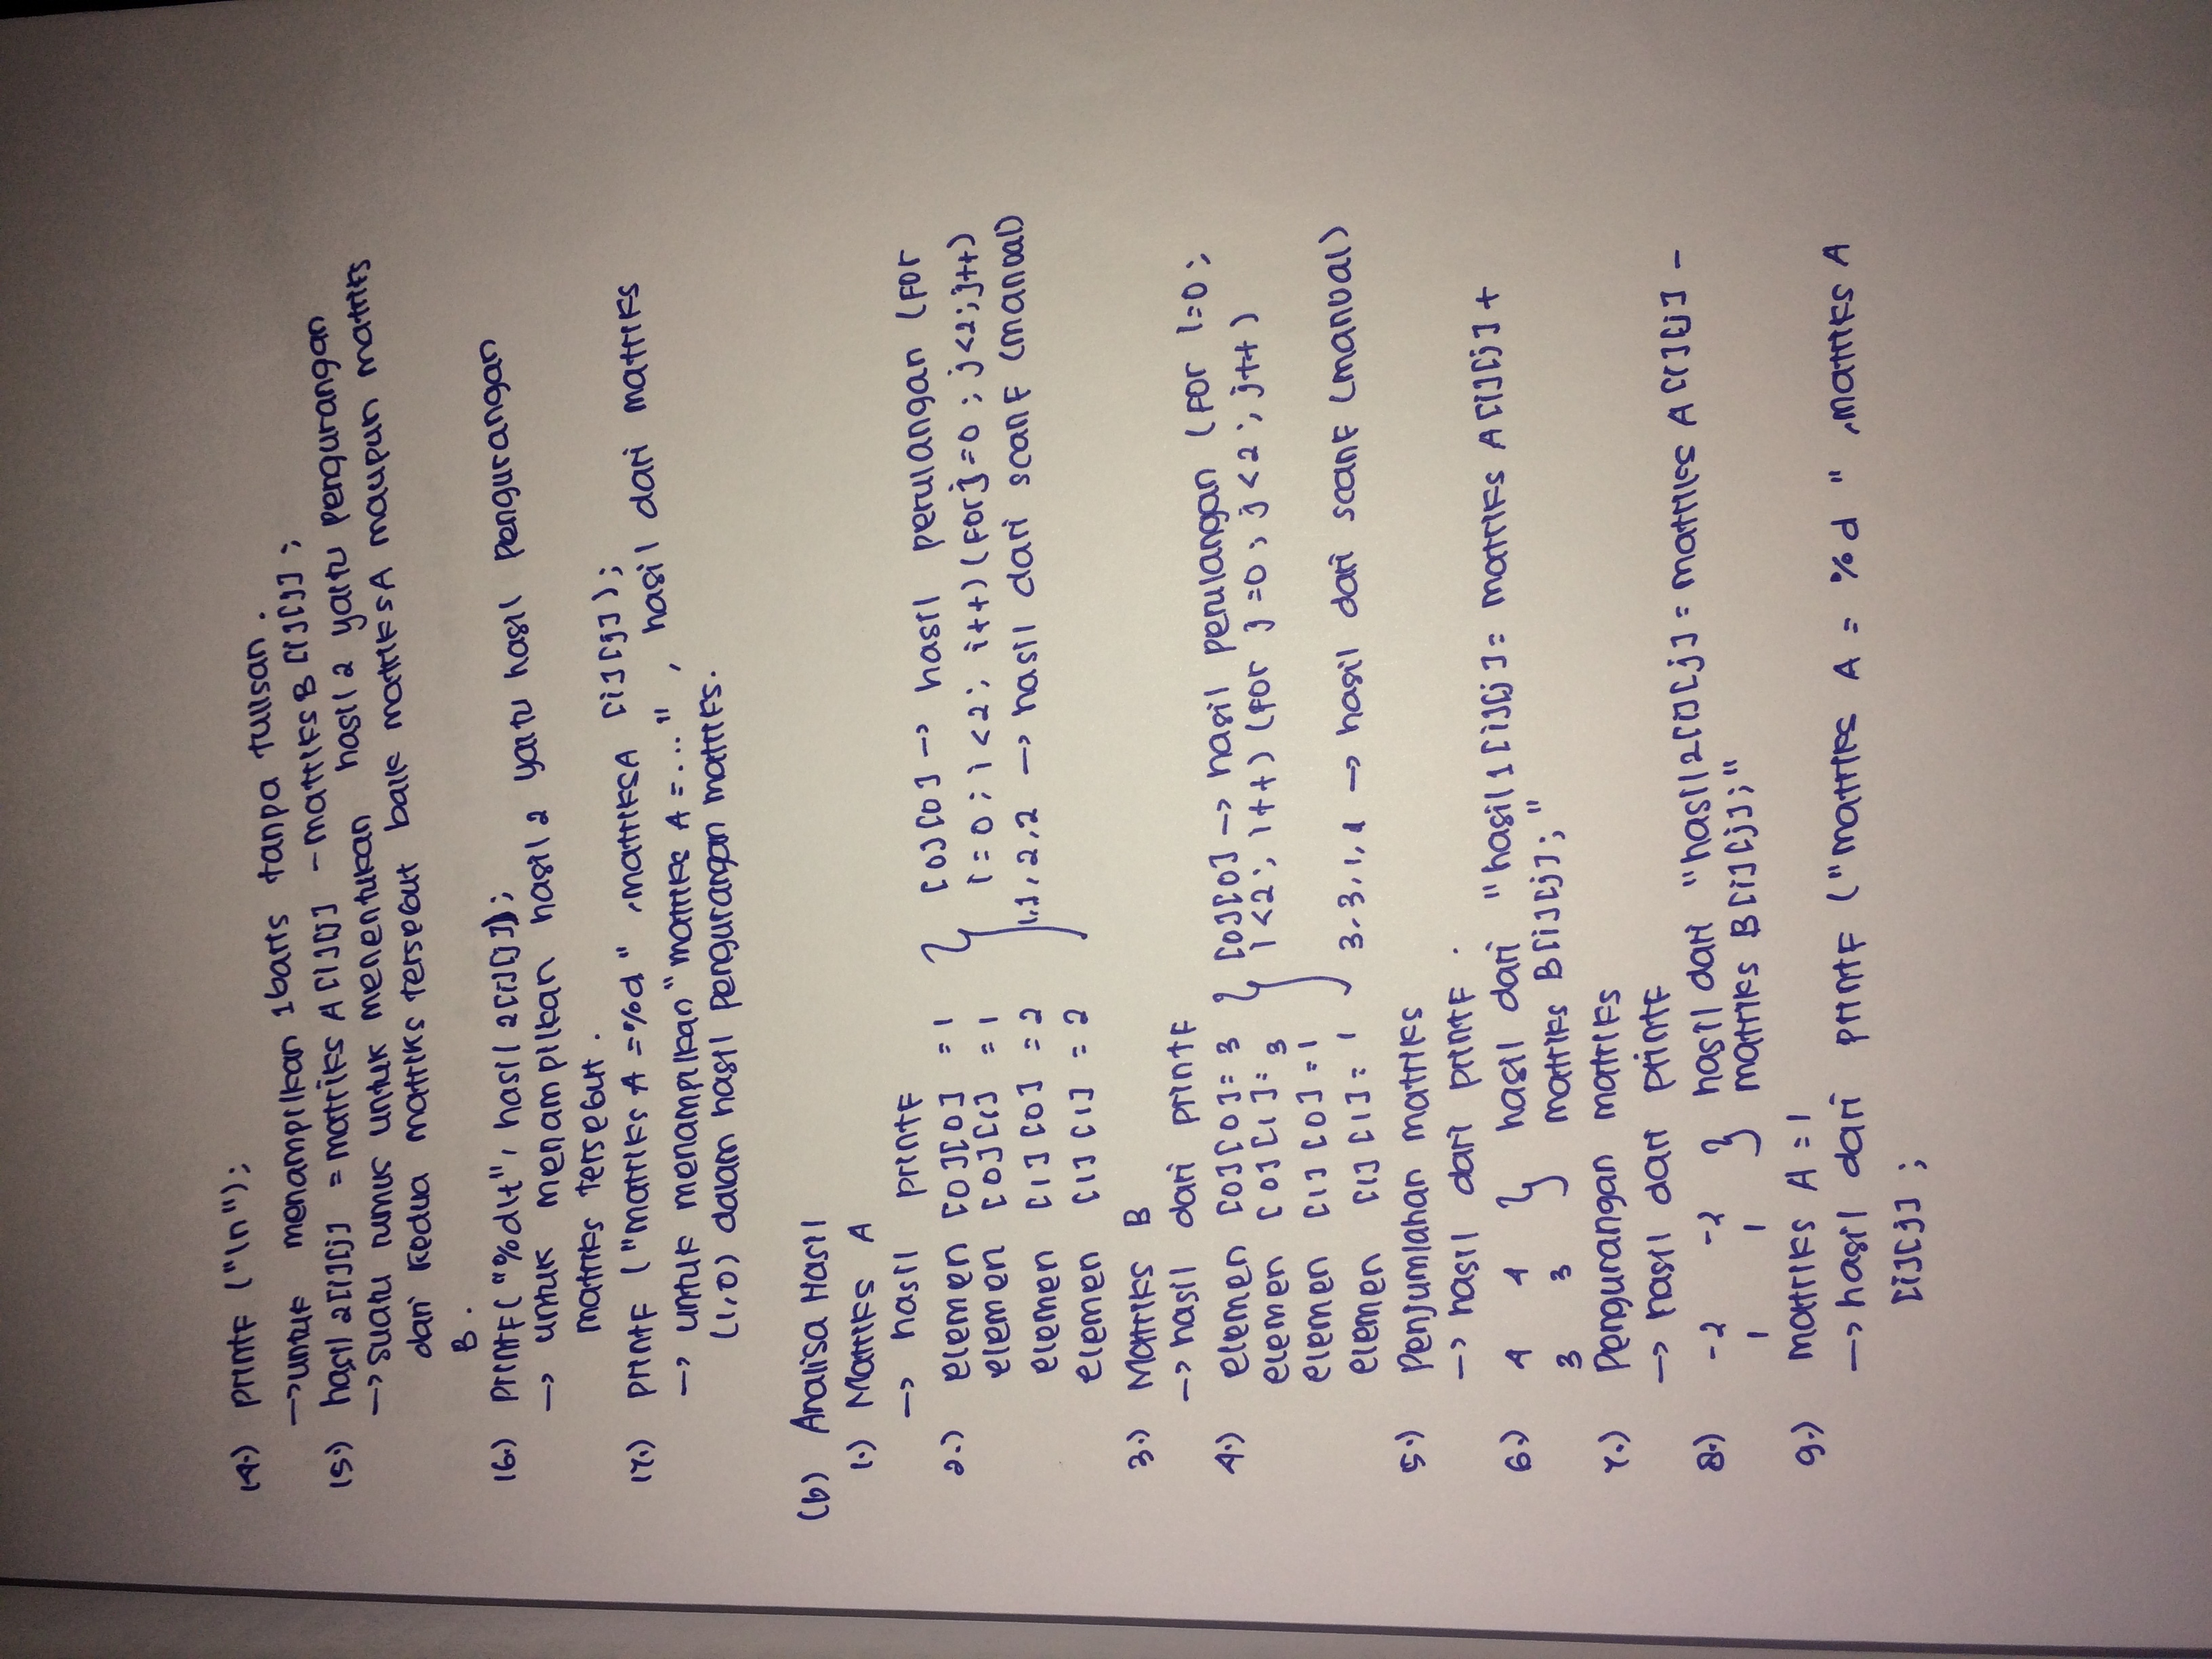 14.) printf ("\n");
→ untuk menampilkan 1 baris tanpa tulisan.
15.) hasil 2[i][j] = matriks A[i][j] - matriks B[i][j];
→ suatu rumus untuk menentukan hasil 2 yaitu pengurangan
dari kedua matriks tersebut baik matriks A maupun matriks
B.
16.) printf("%d\t", hasil 2[i][j]);
→ untuk menampilkan hasil 2 yaitu hasil pengurangan
matriks tersebut.
17.) printf ("matriks A = %d", matriks A [i][j]);
→ untuk menampilkan "matriks A = ...", hasil dari matriks
(1,0) dalam hasil pengurangan matriks.
(b) Analisa Hasil
1.) Matriks A
→ hasil printf
2.) elemen [0][0] = 1 } [0][0] → hasil perulangan (for
elemen [0][1] = 1 i=0; i<2; i++) (for j=0; j<2; j++)
elemen [1][0] = 2 1,1,2,2 → hasil dari scanf (manual)
elemen [1][1] = 2
3.) Matriks B
→ hasil dari printf
4.) elemen [0][0] = 3 } [0][0] → hasil perulangan (for i=0;
elemen [0][1] = 3 i<2; i++) (for j=0; j<2; j++)
elemen [1][0] = 1
elemen [1][1] = 1 3,3,1,1 → hasil dari scanf (manual)
5.) Penjumlahan matriks
→ hasil dari printf.
6.) 4 4 } hasil dari "hasil 1[i][j] = matriks A[i][j] +
3 3 matriks B[i][j];"
7.) Pengurangan matriks
→ hasil dari printf
8.) -2 -2 } hasil dari "hasil 2[i][j] = matriks A[i][j] -
1 1 matriks B[i][j];"
9.) matriks A = 1
→ hasil dari printf ("matriks A = %d", matriks A
[i][j];